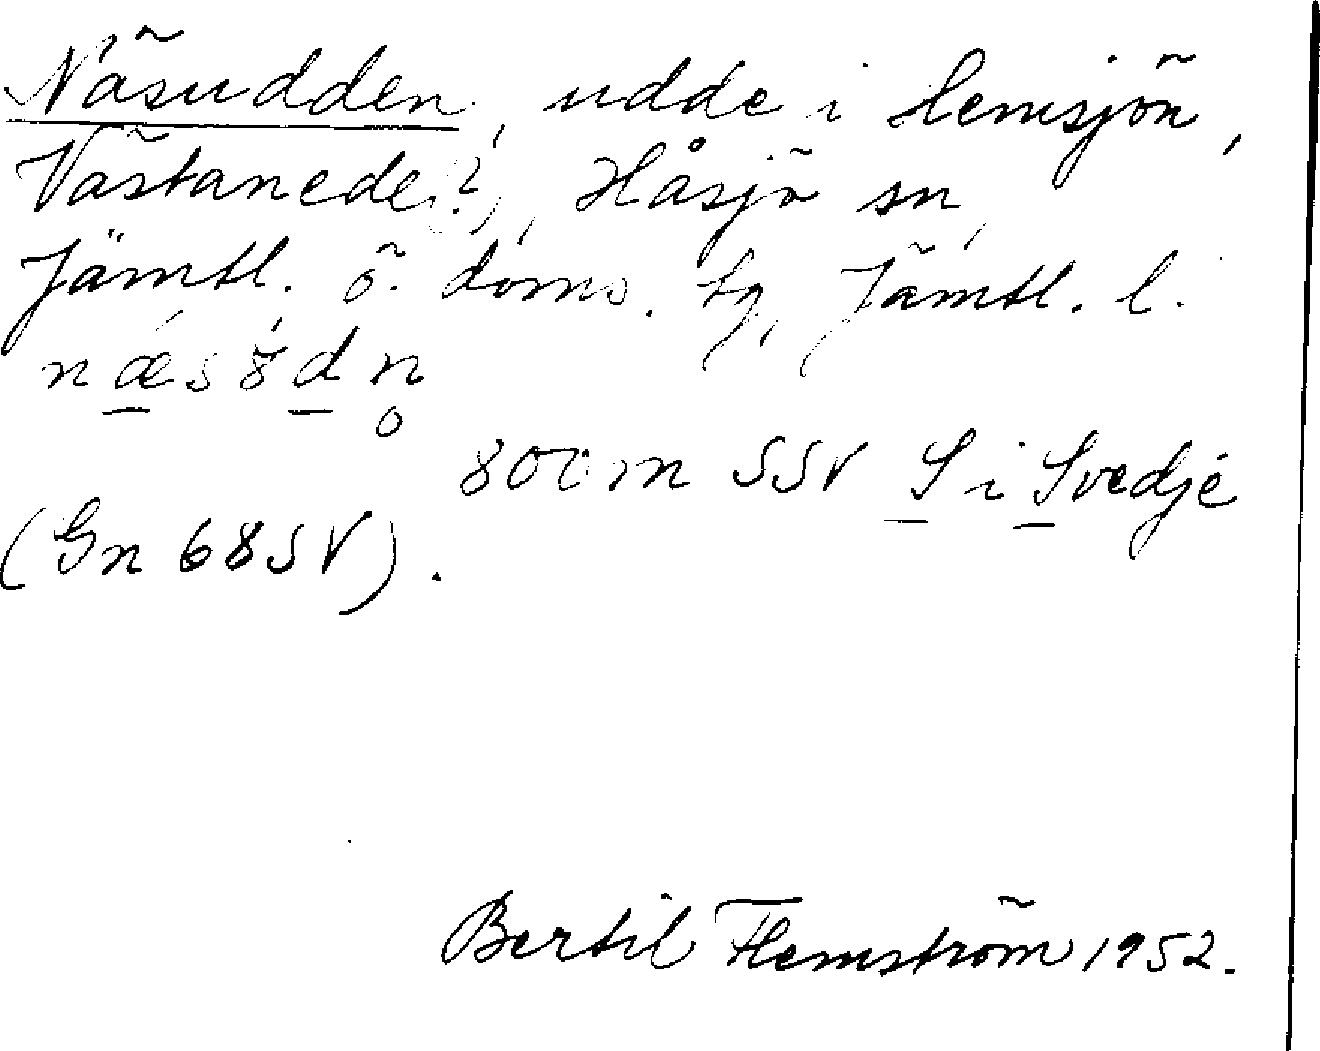 Näsudden, udde i Hemsjön,
Västanede(?), Håsjö sn,
Jämtl. ö. doms. tg, Jämtl. l.
næ̱śs8̀ḏn̥
800 m SSV S̲ i S̲vedje
(Gn 68 SV).
Bertil Flemström 1952.